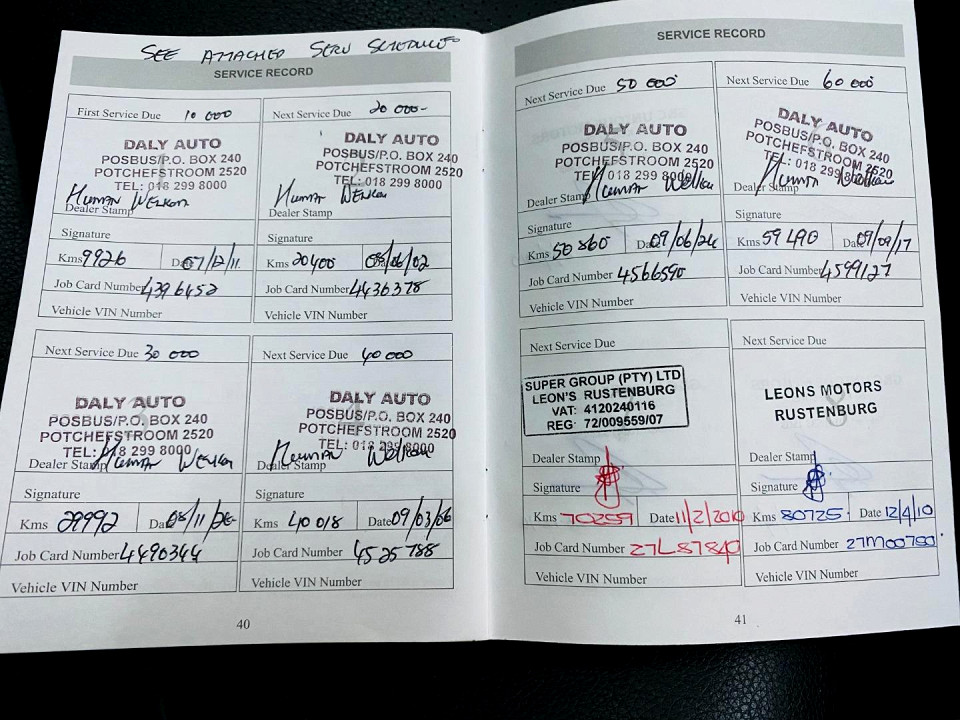 SEE ATTACHED SERV SCHEDULES
SERVICE RECORD
First Service Due 10 000
DALY AUTO
POSBUS/P.O. BOX 240
POTCHEFSTROOM 2520
TEL: 018 299 8000
Human Welkom
Dealer Stamp
Signature
Kms 9926 Date 07/12/11
Job Card Number 4396452
Vehicle VIN Number
Next Service Due 20 000-
DALY AUTO
POSBUS/P.O. BOX 240
POTCHEFSTROOM 2520
TEL: 018 299 8000
Human Welkom
Dealer Stamp
Signature
Kms 20400 08/06/02
Job Card Number 4436378
Vehicle VIN Number
Next Service Due 30 000
DALY AUTO
POSBUS/P.O. BOX 240
POTCHEFSTROOM 2520
TEL: 018 299 8000
Human Welkom
Dealer Stamp
Signature
Kms 29992 Date 08/11/26
Job Card Number 4490344
Vehicle VIN Number
Next Service Due 40 000
DALY AUTO
POSBUS/P.O. BOX 240
POTCHEFSTROOM 2520
TEL: 018 299 8000
Human Welkom
Dealer Stamp
Signature
Kms 40 018 Date 09/03/06
Job Card Number 4525788
Vehicle VIN Number
40
SERVICE RECORD
Next Service Due 50 000
DALY AUTO
POSBUS/P.O. BOX 240
POTCHEFSTROOM 2520
TEL: 018 299 8000
Human Welkom
Dealer Stamp
Signature
Kms 50 860 Date 09/06/24
Job Card Number 4566590
Vehicle VIN Number
Next Service Due 60 000
DALY AUTO
POSBUS/P.O. BOX 240
POTCHEFSTROOM 2520
TEL: 018 299 8000
Human Welkom
Dealer Stamp
Signature
Kms 59 490 Date 09/09/17
Job Card Number 4599127
Vehicle VIN Number
Next Service Due
SUPER GROUP (PTY) LTD
LEON'S RUSTENBURG
VAT: 4120240116
REG: 72/009559/07
Dealer Stamp
Signature
Kms 70259 Date 11/2/2010
Job Card Number 27L87840
Vehicle VIN Number
Next Service Due
8
LEONS MOTORS
RUSTENBURG
Dealer Stamp
Signature
Kms 80725 Date 12/4/10
Job Card Number 27M00780
Vehicle VIN Number
41